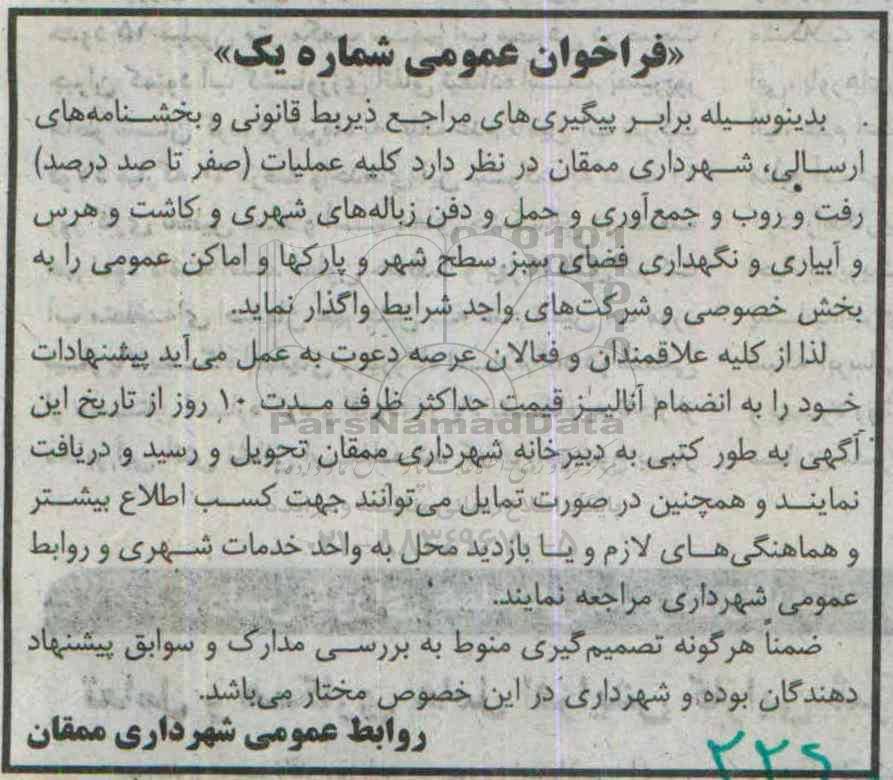 «فراخوان عمومی شماره یک»
بدینوسیله برابر پیگیری‌های مراجع ذیربط قانونی و بخشنامه‌های
ارسالی، شهرداری ممقان در نظر دارد کلیه عملیات (صفر تا صد درصد)
رفت و روب و جمع‌آوری و حمل و دفن زباله‌های شهری و کاشت و هرس
و آبیاری و نگهداری فضای سبز سطح شهر و پارکها و اماکن عمومی را به
بخش خصوصی و شرکت‌های واجد شرایط واگذار نماید.
لذا از کلیه علاقمندان و فعالان عرصه دعوت به عمل می‌آید پیشنهادات
خود را به انضمام آنالیز قیمت حداکثر ظرف مدت ۱۰ روز از تاریخ این
آگهی به طور کتبی به دبیرخانه شهرداری ممقان تحویل و رسید و دریافت
نمایند و همچنین در صورت تمایل می‌توانند جهت کسب اطلاع بیشتر
و هماهنگی‌های لازم و یا بازدید محل به واحد خدمات شهری و روابط
عمومی شهرداری مراجعه نمایند.
ضمناً هرگونه تصمیم‌گیری منوط به بررسی مدارک و سوابق پیشنهاد
دهندگان بوده و شهرداری در این خصوص مختار می‌باشد.
روابط عمومی شهرداری ممقان
ParsNamadData